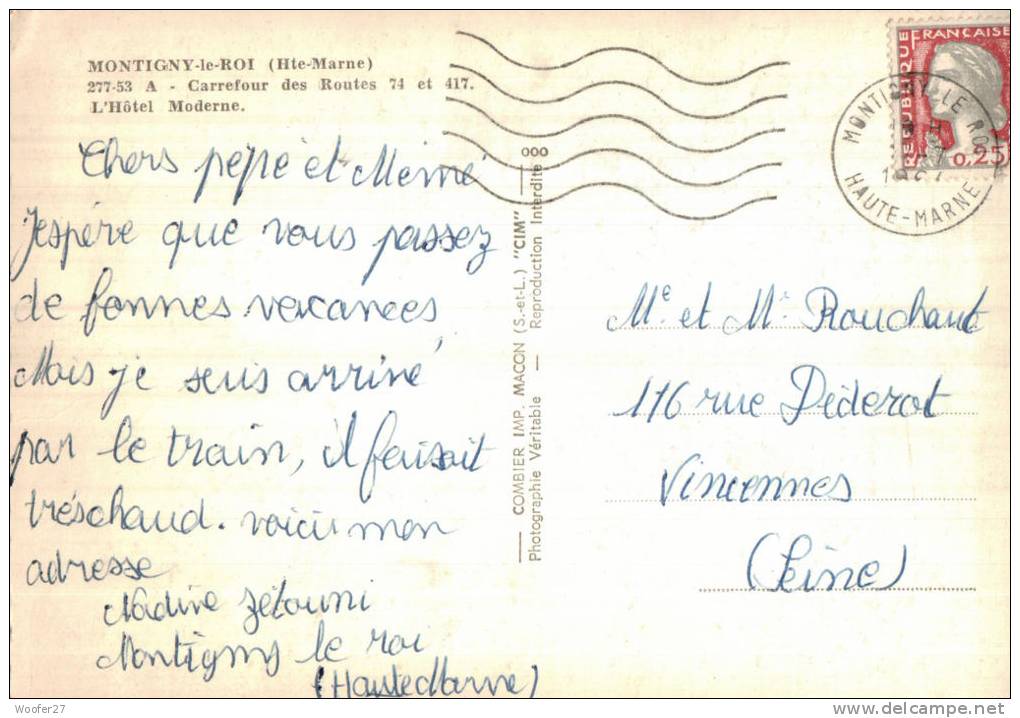 MONTIGNY-le-ROI (Hte-Marne)
277-53 A - Carrefour des Routes 74 et 417.
L'Hôtel Moderne.
Chers pépé et Mémé
J'espère que vous passez
de bonnes vacances,
Mais je suis arrivé
par le train, il faisait
trés chaud. voici mon
adresse
Nadine Zétouni
Montigny le roi
(Haute Marne)
COMBIER IMP. MACON (S.-et-L.) "CIM"
Photographie Véritable — Reproduction Interdite
REPUBLIQUE FRANCAISE
0,25
MONTIGNY LE ROI
HAUTE-MARNE
Me et Mr Rouchaut
116 rue Diderot
Vincennes
(Seine)
Woofer27
www.delcampe.net